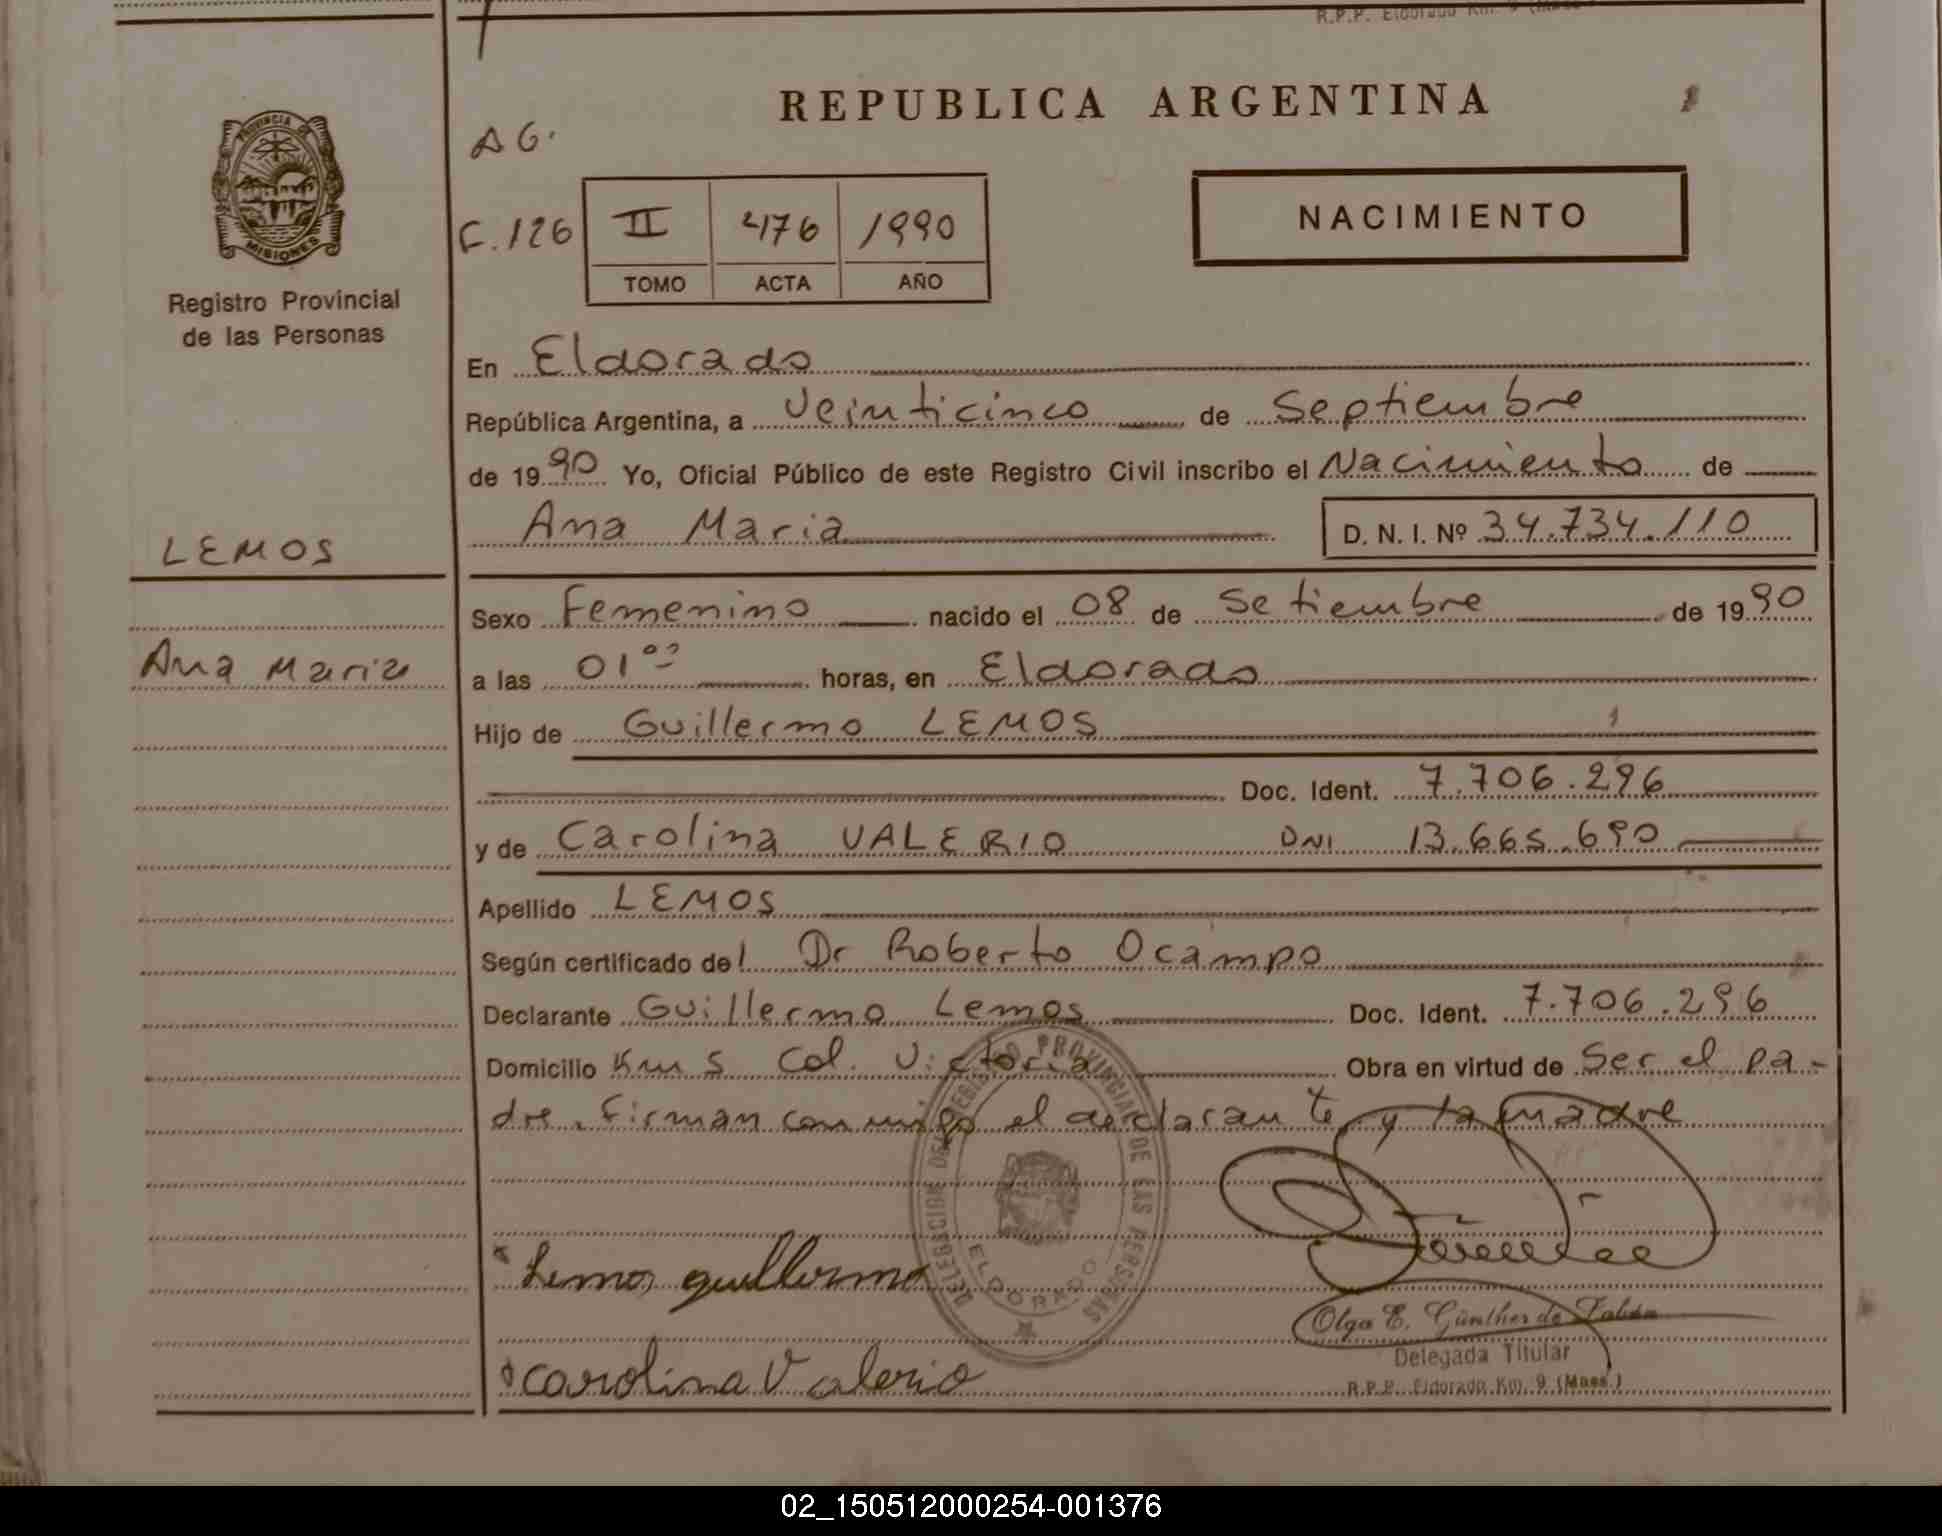 R.P.P. Eldorado Km. 9
REPUBLICA ARGENTINA
PROVINCIA DE
MISIONES
Registro Provincial
de las Personas
A G.
F. 126
II 476 1990
TOMO ACTA AÑO
NACIMIENTO
En Eldorado
República Argentina, a Veinticinco de Septiembre
de 1990 Yo, Oficial Público de este Registro Civil inscribo el Nacimiento de
Ana Maria D. N. I. Nº 34.734.110
LEMOS
Ana Maria
Sexo Femenino nacido el 08 de Setiembre de 1990
a las 01 00 horas, en Eldorado
Hijo de Guillermo LEMOS
Doc. Ident. 7.706.296
y de Carolina VALERIO DNI 13.665.690
Apellido LEMOS
Según certificado del Dr Roberto Ocampo
Declarante Guillermo Lemos Doc. Ident. 7.706.296
Domicilio Km 5 Col. Victoria Obra en virtud de Ser el pa-
dre. Firman conmigo el declarante y la madre
DELEGACION DEL REGISTRO PROVINCIAL DE LAS PERSONAS
ELDORADO
Lemos guillermo
Olga E. Günther de
Delegada Titular
R.P.P. Eldorado Km. 9 (Mnes.)
Carolina Valerio
02_150512000254-001376